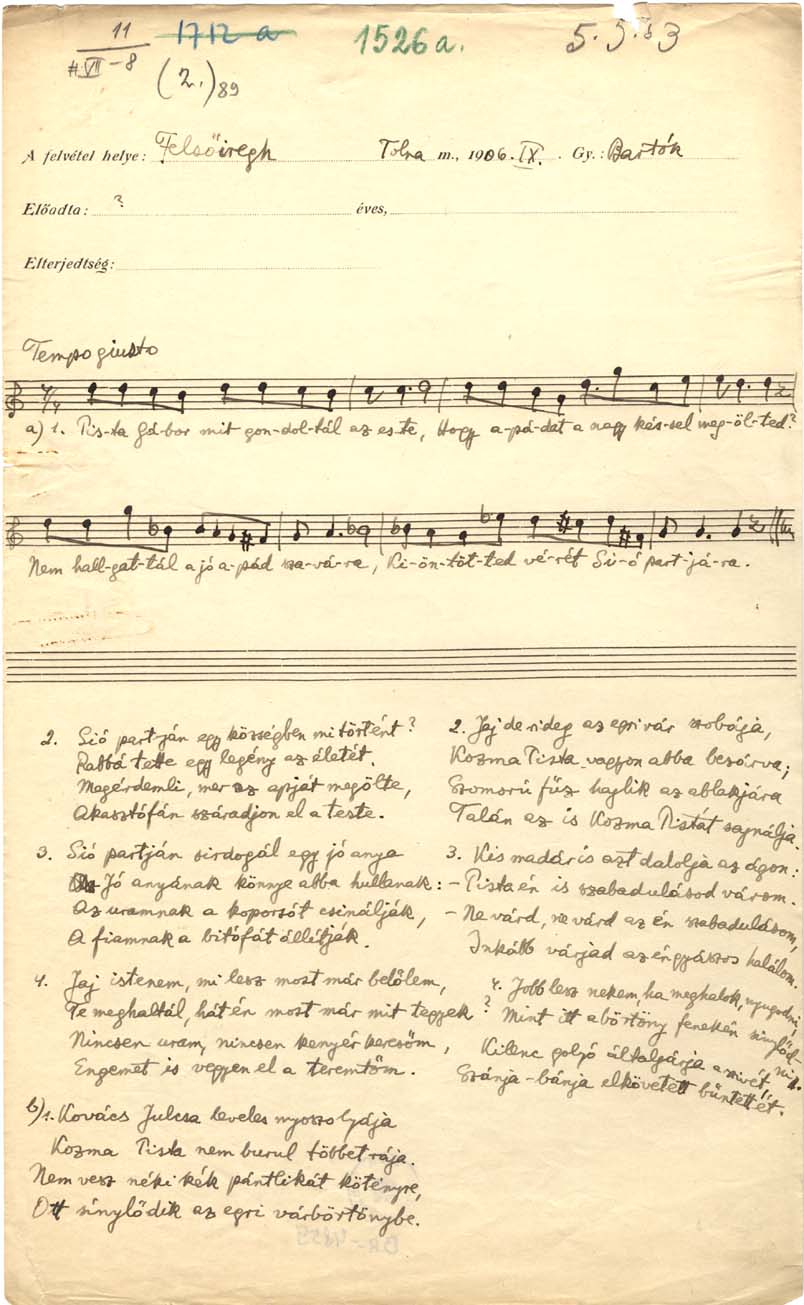 11 1712 a 1526 a. 5. 5. b 3
# VII - 8
(2.) 89
A felvétel helye: Felsőiregh Tolna m., 1906. IX. Gy.: Bartók
Előadta: ? éves,
Elterjedtség:
Tempo giusto
7/4
a) 1. Pis-ta Gá-bor mit gon-dol-tál az es-te, Hogy a-pá-dat a nagy kés-sel meg-öl-ted?
Nem hall-gat-tál a jó a-pád sza-vá-ra, Ki-ön-töt-ted vé-rét Si-ó part-já-ra.
2. Sió partján egy községben mi történt?
Rabbá tette egy legény az életét.
Megérdemli, mer az apját megölte,
Akasztófán száradjon el a teste.
3. Sió partján sirdogál egy jó anya
Jó anyának könnye abba hullanak:
Az uramnak a koporsót csinálják,
A fiamnak a bitófát állítják.
4. Jaj istenem, mi lesz most már belőlem,
Te meghaltál, hát én most már mit tegyek?
Nincsen uram, nincsen kenyér keresőm,
Engemet is vegyen el a teremtőm.
b) 1. Kovács Julcsa leveles nyoszolyája
Kozma Pista nem burul többet rája.
Nem vesz néki kék pántlikát kötényre,
Ott sínylődik az egri várbörtönybe.
2. Jaj de rideg az egri vár szobája,
Kozma Pista vagyon abba bezárva;
Szomorú fűz hajlik az ablakjára
Talán az is Kozma Pistát sajnálja.
3. Kis madár is azt dalolja az ágon:
- Pista én is szabadulásod várom.
- Ne várd, ne várd az én szabadulásom,
Inkább várjad az én gyászos halálom.
4. Jobb lesz nekem, ha meghalok, nyugodni,
Mint itt a börtöny fenekén sínylődni.
Kilenc golyó általjárja a szivét,
Szánja-bánja elkövetett bűntettét.